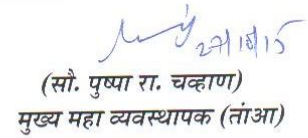 (सौ. पुष्पा रा. चव्हाण)
मुख्य महा व्यवस्थापक (तांआ)